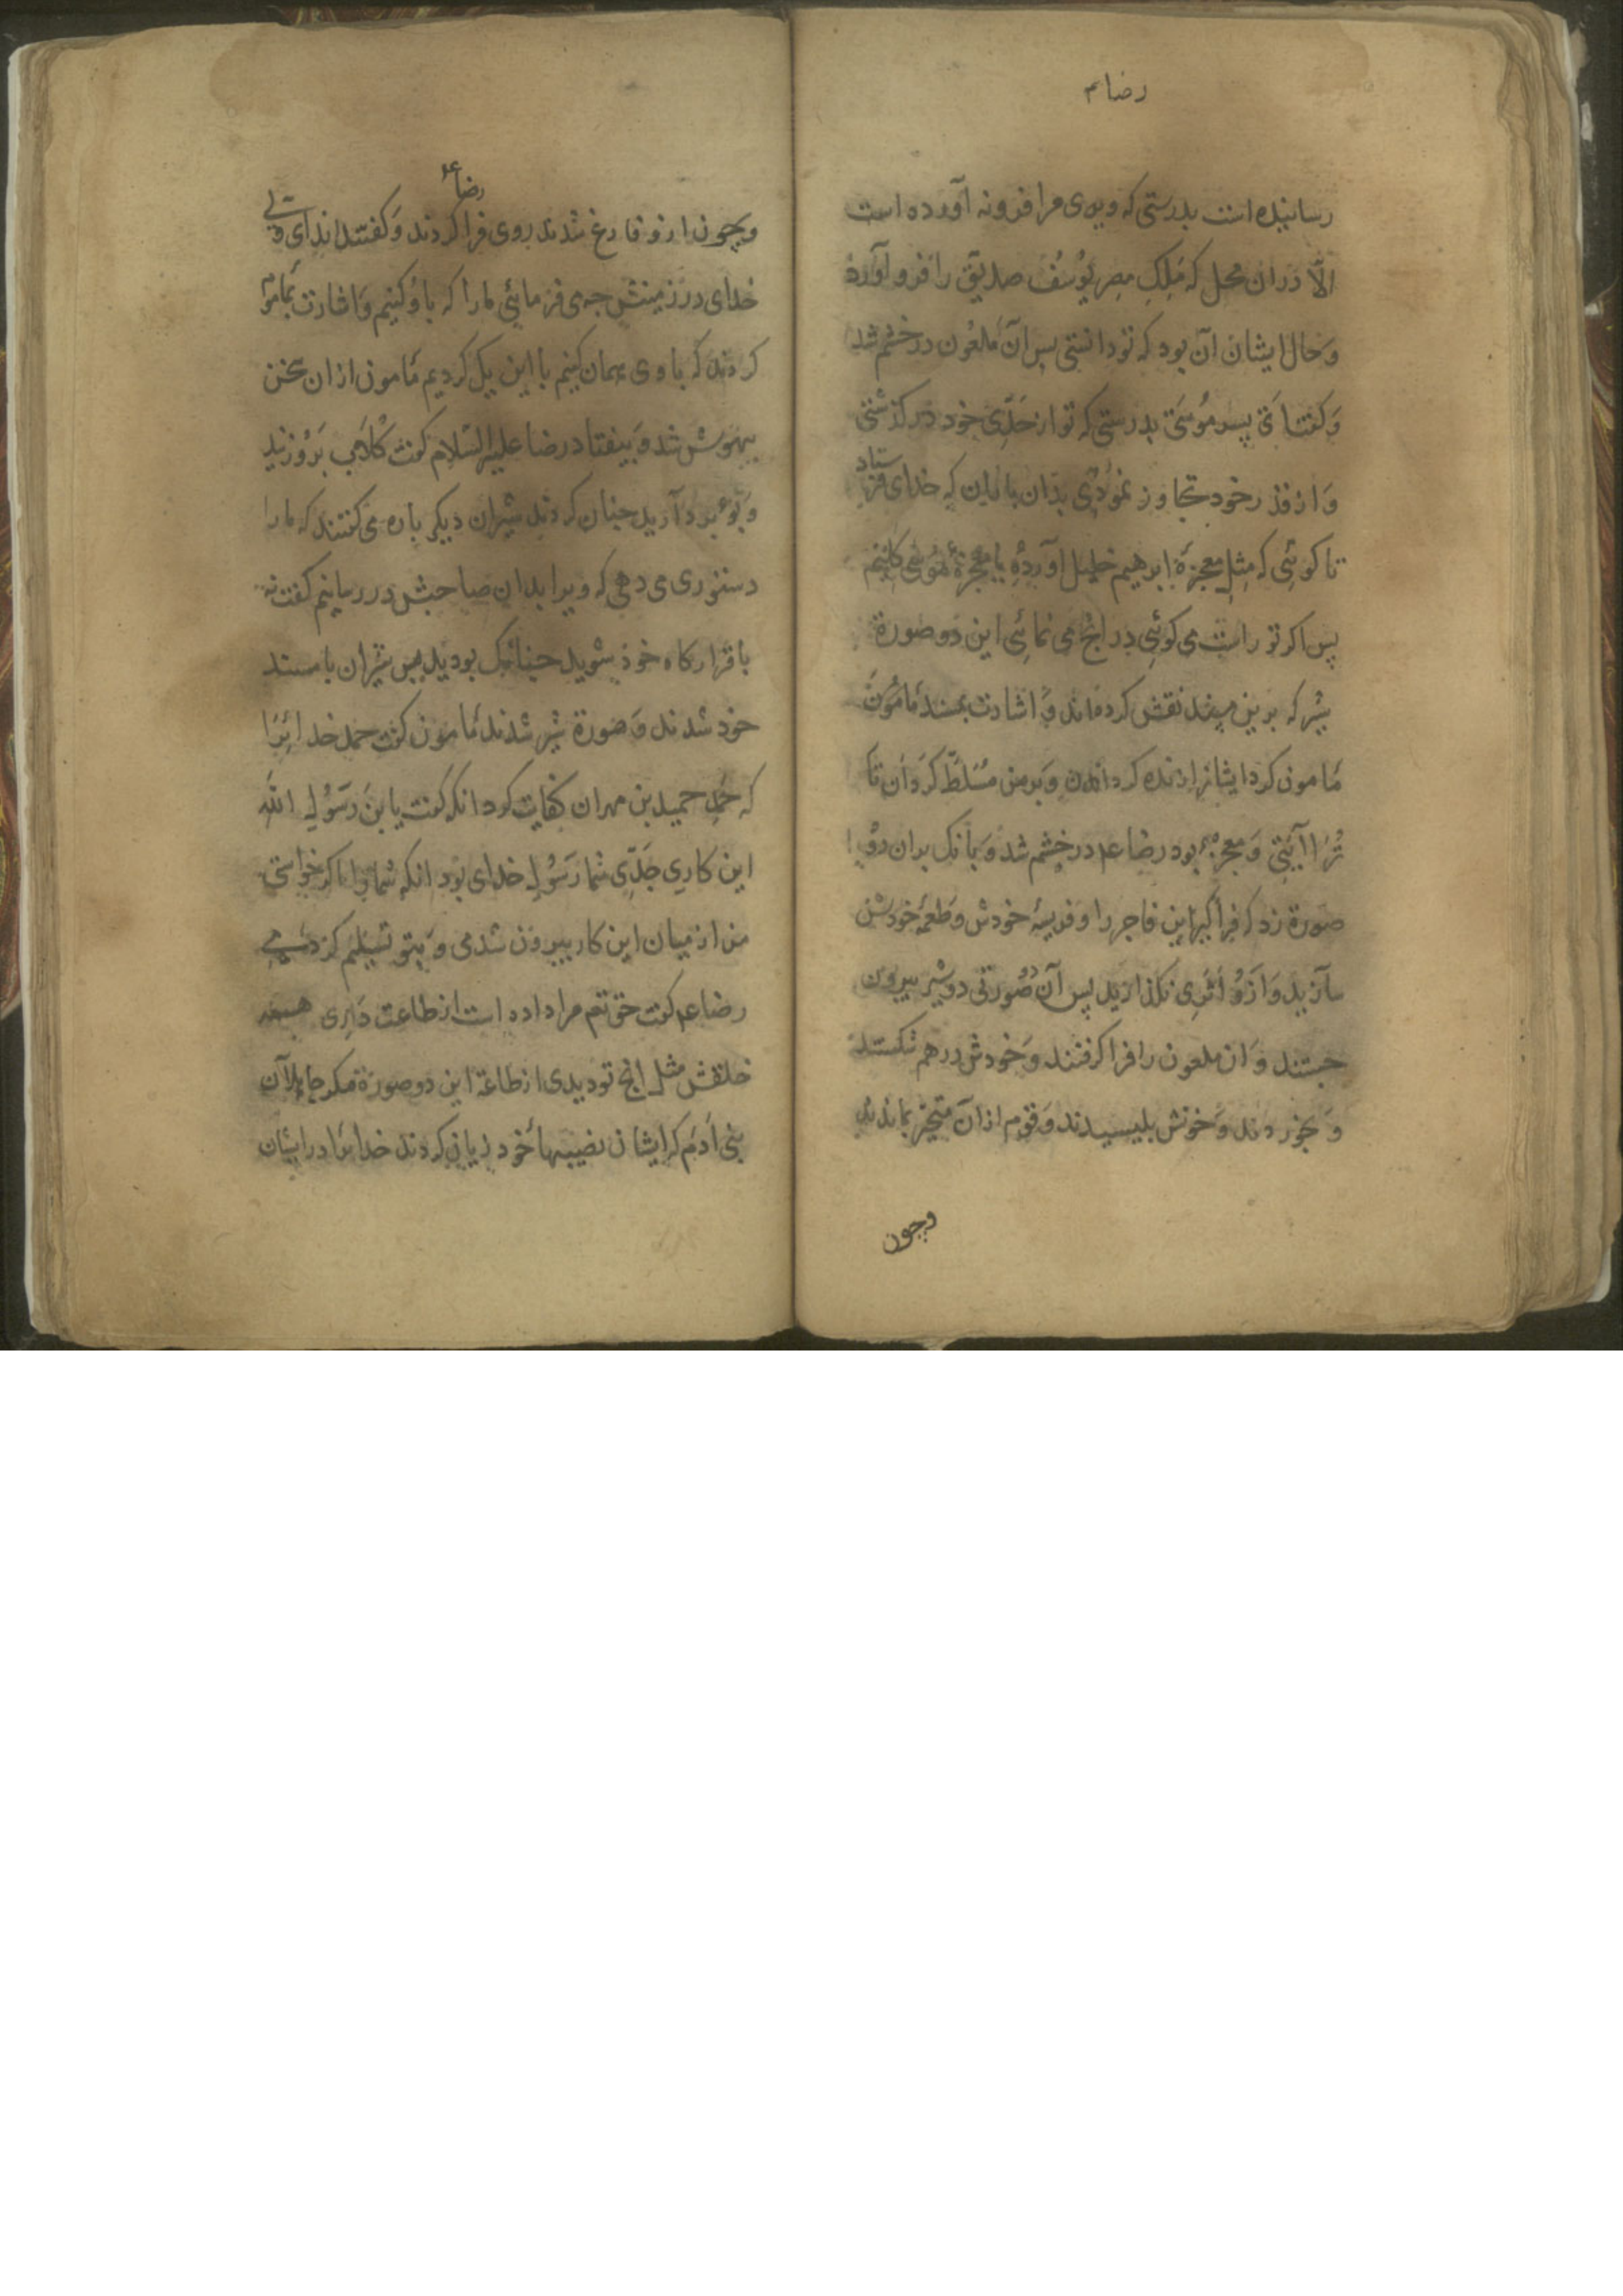 رضا م
رسانیده است بدرستی که وی مرا فرو نه آورده است
الّا دران محل که مَلِکِ مصر یوُسُف صدیق را فرو آورد
وَ حال ایشان آن بود که تو دانستی پس آن مَلعُون در خشم شد
وَ کفت ای پسر مُوسَی بدرستی که تو از حَدِّی خود در کذشتی
وَ از قدر خود تجاوز نموُدی بدان باران که خدای فرستاد
تا کوئی که مِثلِ معجزهٔ ابرهیم خلیل آوردهٔ یا معجزهٔ موُسی کلیم
پس اکر تو راست می کوئی در انچ می نمائی این دو صورة
شیر که برین مسند نقش کرده‌اند وَ اشارت بمسند مَامُون
مَامون کرد ایشانرا زنده کردان و بر من مُسَلَّط کردان تا
تُرا آیتی وَ معجزهٔ بود رضا عم در خشم شد وَ بانک بران دو
صورة زد که فرا کیرید این فاجر را و فریسهٔ خودش و طعمهٔ خودش
سازید وَ ازوُ اَثَری نکذارید پس آن دو صُورتی دو شیر بیرون
جستند وَ ان ملعون را فرا کرفتند وَ خودش درهم شکستند
وَ بخوردند وَ خونش بلیسیدند وَ قوم ازان متحیّر بماندند
وچون
رضا عم
وچون ازو فارغ شدند بروی فرا کردند وَ کفتند ای ولی
خدای در زمینش چه می فرمائی ما را که با وُ کنیم وَ اشارت بمامون
کردند که با وی همان کنیم با این یک کردیم مَامون ازان سخن
بیهوش شد وَ بیفتاد رضا علیه السّلام کفت کلابی بَرو زنید
وَ آرید چنان کردند شیران دیکر باره می کفتند که ما را
دستوری می دهی که ویرا بدان صاحبش در رسانیم کفت نه
با قرارکاه خوذ شوید چنانک بودید پس شیران با مسند
خود شدند وَ صورة شیر شدند مَامون کفت حمد خدائیرا
که حمید بن مهران کفایت کرد انکه کفت یا بنَ رَسُولِ اللّه
این کارِی جَدِّی شما رَسُولِ خدای بود انکه شما را اکر خواستی
من از میان این کار بیرون شدمی وَ بتو تسلیم کردمی
رضا عم کفت حق تعم مرا داده است از طاعت دارِی همه
خلقش مثل انچ تو دیدی از طاعة این دو صورة مکر جاهلان
بنی آدَم که ایشان نصیبهاءِ خود زیان کردند خدایرا در ایشان